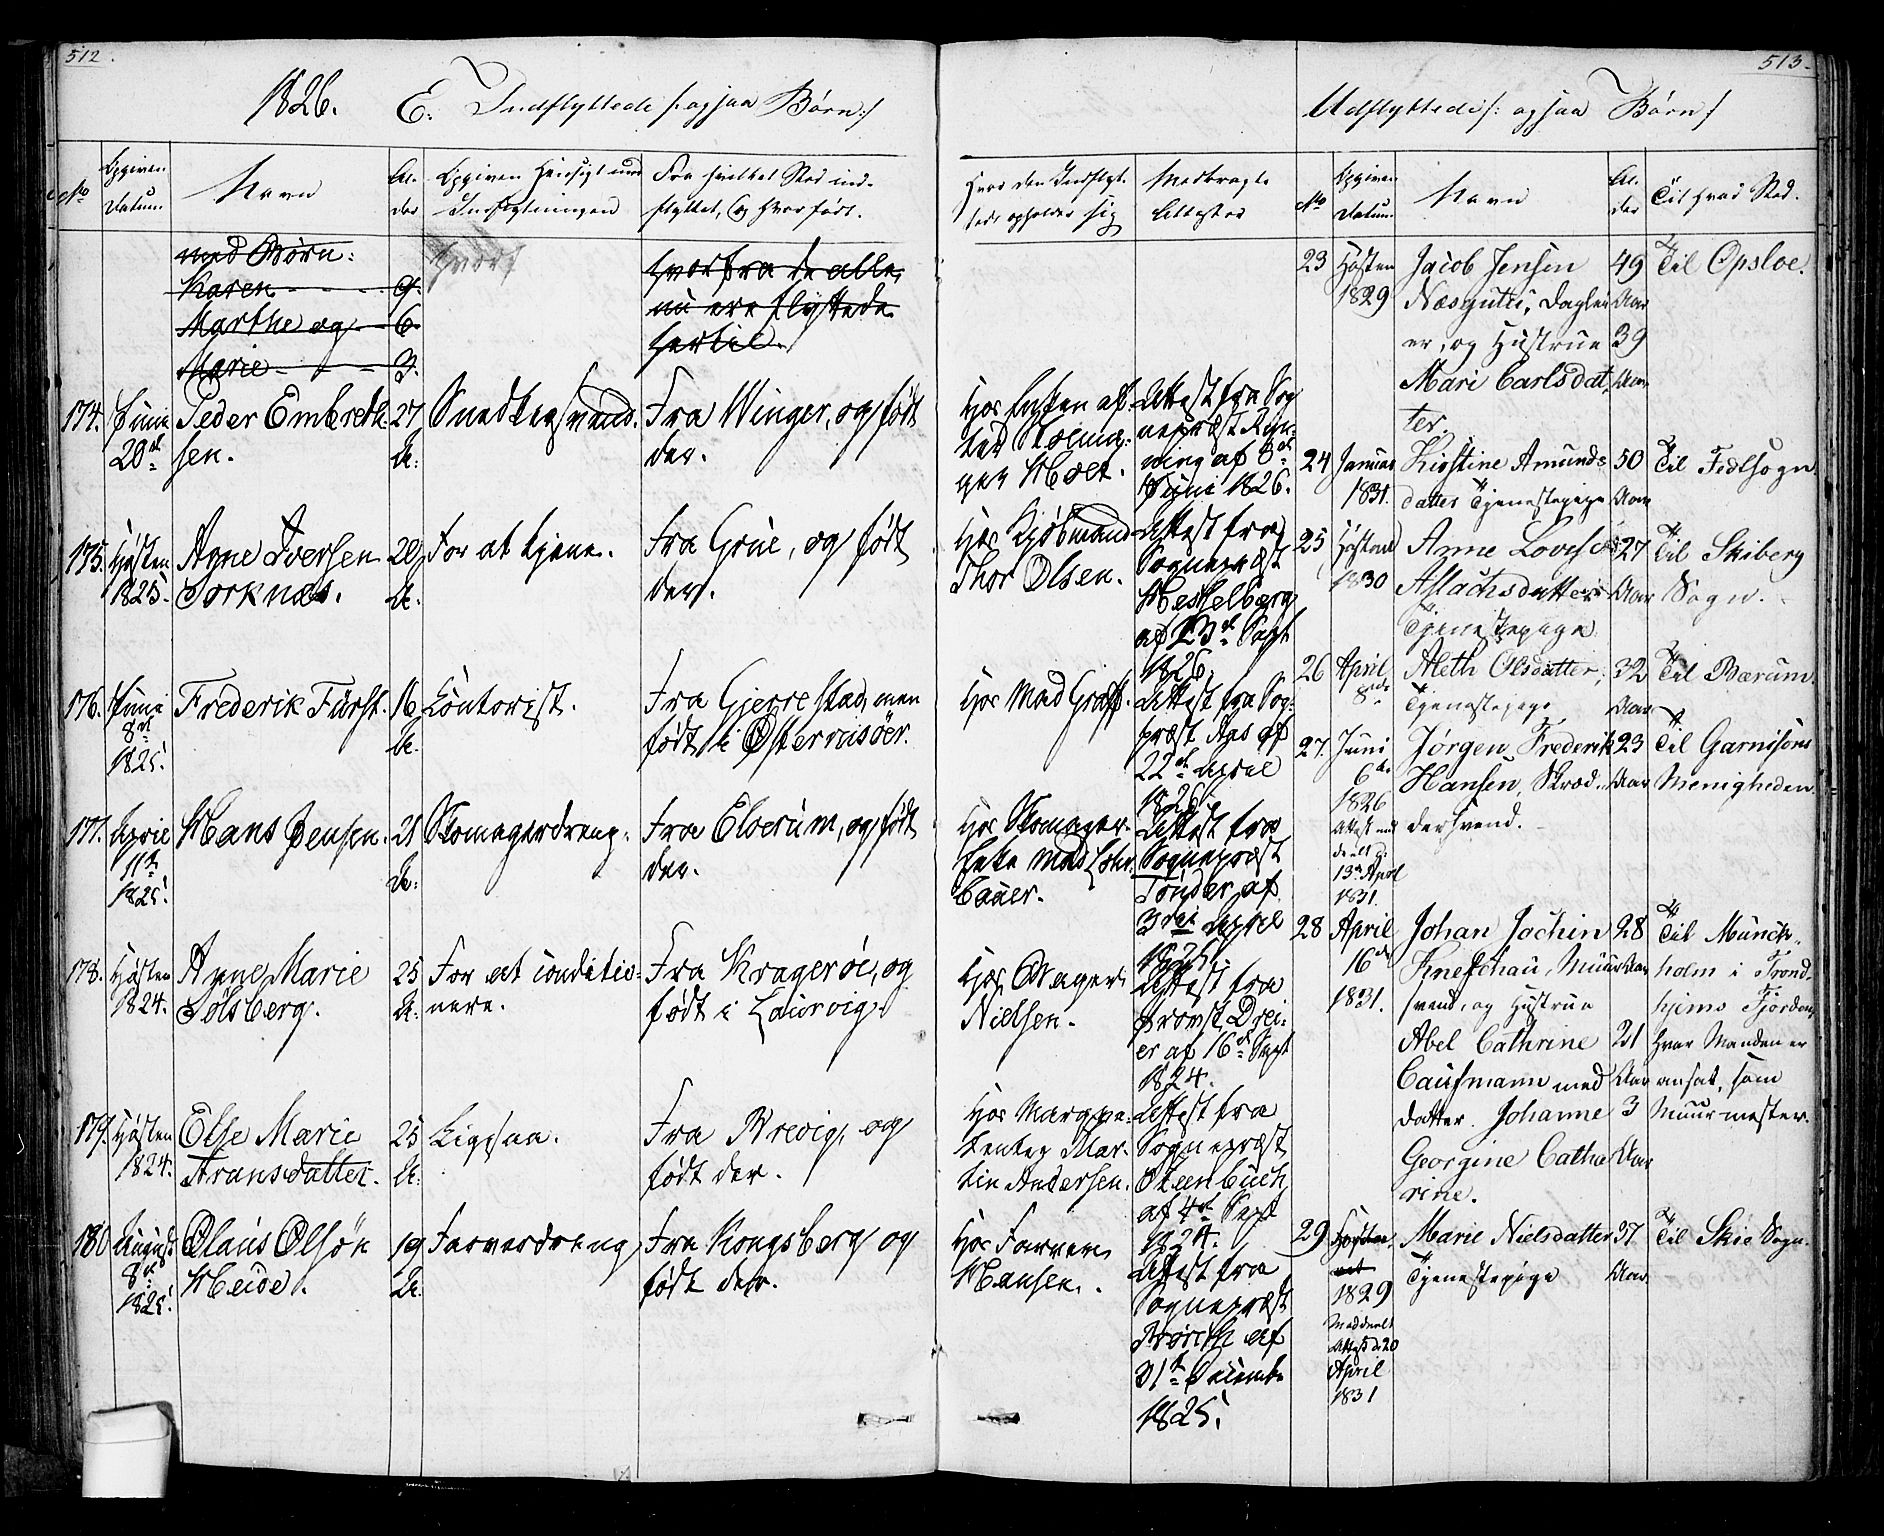 512.
1826. E. Indflyttede /: ogsaa Børn :/
No
Opgiven Datum.
Navn
Al-der
Opgiven Hensigt med Indflytningen
Fra hvilket Sted ind-flyttet, og hvor født.
Hvor den Indflyt-tede opholder sig
Medbragte Attester
med Børn:
Karen
9.
Marthe og
6.
Marie
3.
hvorfra de alle,
nu ere flyttede
hertil.
174. Juni 20de
Peder Embreth-
sen.
27 A:
Snedkersvend.
Fra Winger, og født
der.
Attest fra Sog
nepræst
ning af 8de
Juni 1826.
175. Høsten 1825.
Anne Iversen
Torknæs.
20 A:
For at tjene.
Fra Grue, og født
der.
Hos Kjøbmand
Thor Olsen.
Attest fra
Sognepræst
Hesselberg
af 23de Sept
1826.
176. Juni 8de 1825.
Frederik Fürst.
16 A:
Contorist.
Fra Gjerrestad, men
født i Østerrisöer.
Hos Mad Graff.
Attest fra Sog-
præst Aas af
22de April
1826.
177. April 11te 1825.
Hans Jensen.
21 A:
Skomagerdreng.
Fra Elverum, og født
der.
Hos Skomager-
Enke Mad
Bauer.
Attest fra
Sognepræst
Tønder af
3die April
1825.
178. Høsten 1824.
Anne Marie
Solsberg.
25 A:
For at conditio-
nere.
Fra Kragerøe, og
født i Laurvig.
Hos
Nielsen.
Attest fra
Provst Drei-
er af 16de Sept
1824.
179. Høsten 1824.
Else Marie
Fransdatter.
25 A:
Ligesaa.
Fra Brevig, og
født der.
Hos
Mar-
tin Andersen.
Attest fra
Sognepræst
Steenbuch
af 4de Sept
1824.
180 August 8de 1825.
Olaus Olsøn
Heide.
19 A:
Farverdreng
Fra Kongsberg og
født der.
Hos Farver
Hansen.
Attest fra
Sognepræst
Rørith af
31te Decembr
1825.
513.
Udflyttede /: ogsaa Børn /
No
Opgiven Datum.
Navn
Al-der
Til hvad Sted.
23 Høsten 1829
Jacob Jensen
Næsgutie, Daglei
er, og Hustrue
Mari Carlsdat
ter.
49 Aar
39 Aar
Til Opsloe.
24 Januar 1831.
Kirstine Amunds
datter Tjenestepige
50 Aar
Til Fedtsogn
25 Høsten 1830
Anne Lovise
Aslachsdatter
Tjenestepige
27 Aar
Til Skiberg
Sogn.
26 April 8de
Aleth Olsdatter,
Tjenestepige
32 Aar
Til Bærum.
27. Juni 6te 1826
Attest med
deelt d:
13de April
1831.
Jørgen Frederik
Hansen, Skræd-
dersvend.
23 Aar
Til Garnisons
Menigheden.
28 April 16de 1831.
Johan Jochin
Kneschau, Muur
svend, og Hustrue
Abel Cathrine
Caufmann med
datter Johanne
Georgine Catha
rine.
28 Aar
21 Aar
3 Aar
Til Münck-
holm i Trond-
hjems Fjorden
hvor Manden er
ansat, som
Muurmester.
29 Høsten
1829
Meddeelt
Attest d. 20
April
1831
Marie Nielsdatter
Tjenestepige
37 Aar
Til Skie Sogn.